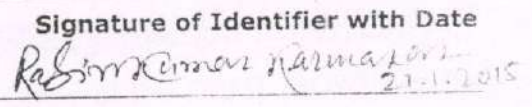 Signature of Identifier with Date
Rabin Kumar Karmakar
21.1.2015